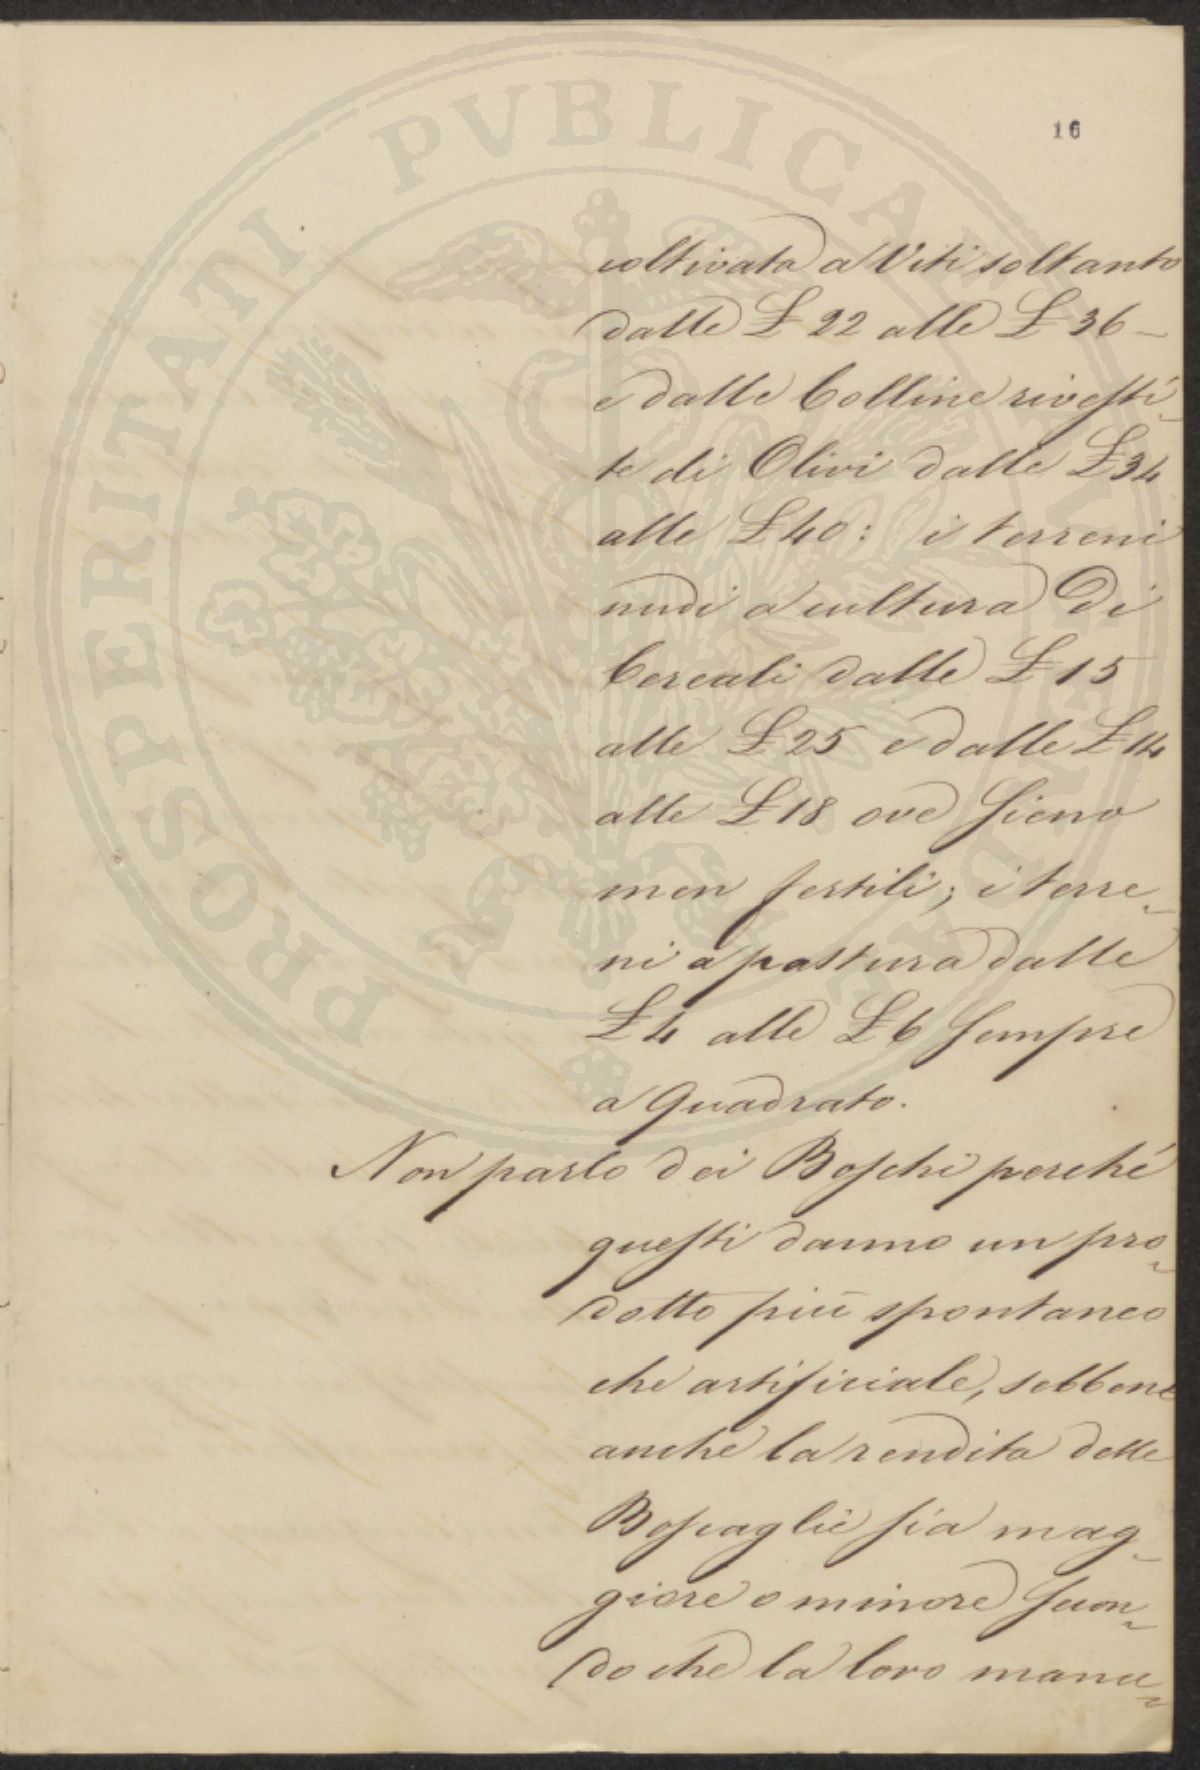 16
coltivata a Viti soltanto
dalle £ 22 alle £ 36 –
e dalle Colline rivesti-
te di Olivi dalle £ 34
alle £ 40: i terreni
nudi a cultura di
Cereali dalle £ 15
alle £ 25 e dalle £ 14
alle £ 18 ove sieno
men fertili; i terre-
ni a pastura dalle
£ 4 alle £ 6 sempre
a Quadrato.
Non parlo dei Boschi perché
questi danno un pro-
dotto più spontaneo
che artificiale, sebbene
anche la rendita delle
Boscaglie sia mag-
giore o minore secon-
do che la loro manu-
PROSPERITATI PVBLICAE AVGENDAE